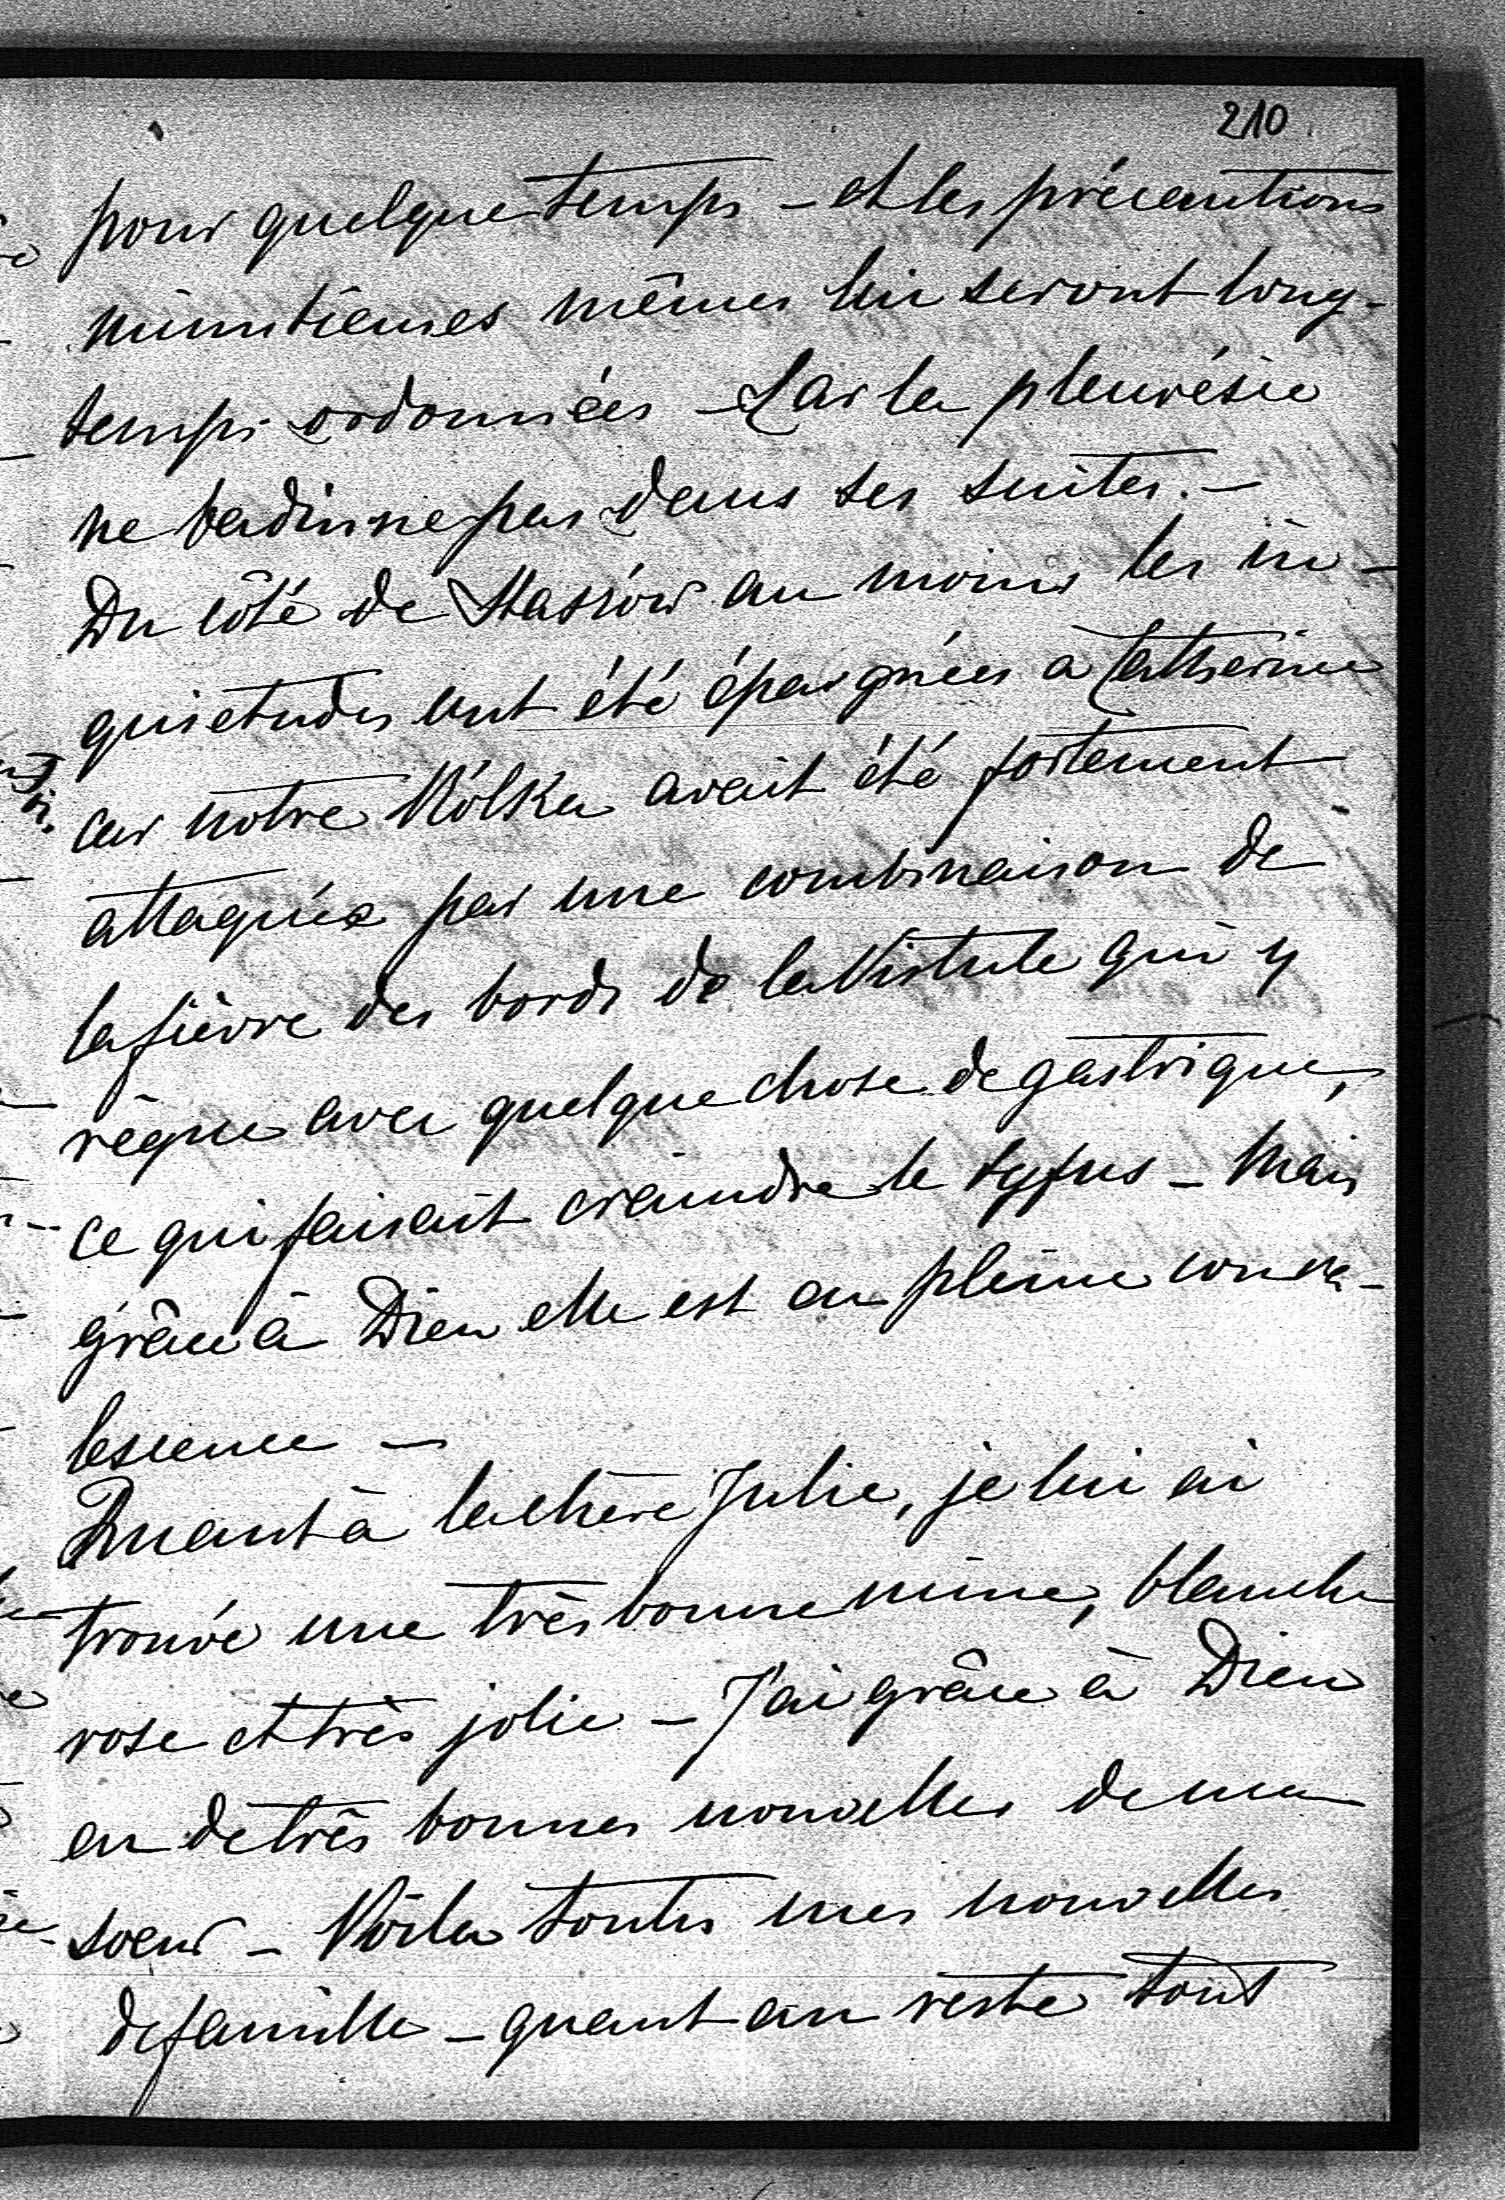 210
pour quelque temps – et les précautions
minutieuses mêmes lui seront long-
temps ordonnées – Car la pleurésie
ne badinne pas dans ses suites. –
Du côté de Stassów au moins les in-
quietudes ont été épargnées à Catherine
car notre Rólka avait été fortement
attaquée par une combinaison de
la fièvre des bords de la Vistule qui y
règne avec quelque chose de gastrique,
ce qui faisait craindre le tyfus – Mais
grâce à Dieu elle est en pleine conva-
lescence –
Quant à la chère Julie, je lui ai
trouvé une très bonne mine, blanche
rose et très jolie – J'ai grâce à Dieu
eu de très bonnes nouvelles de ma
soeur – Voila toutes mes nouvelles
de famille – quant au reste tout